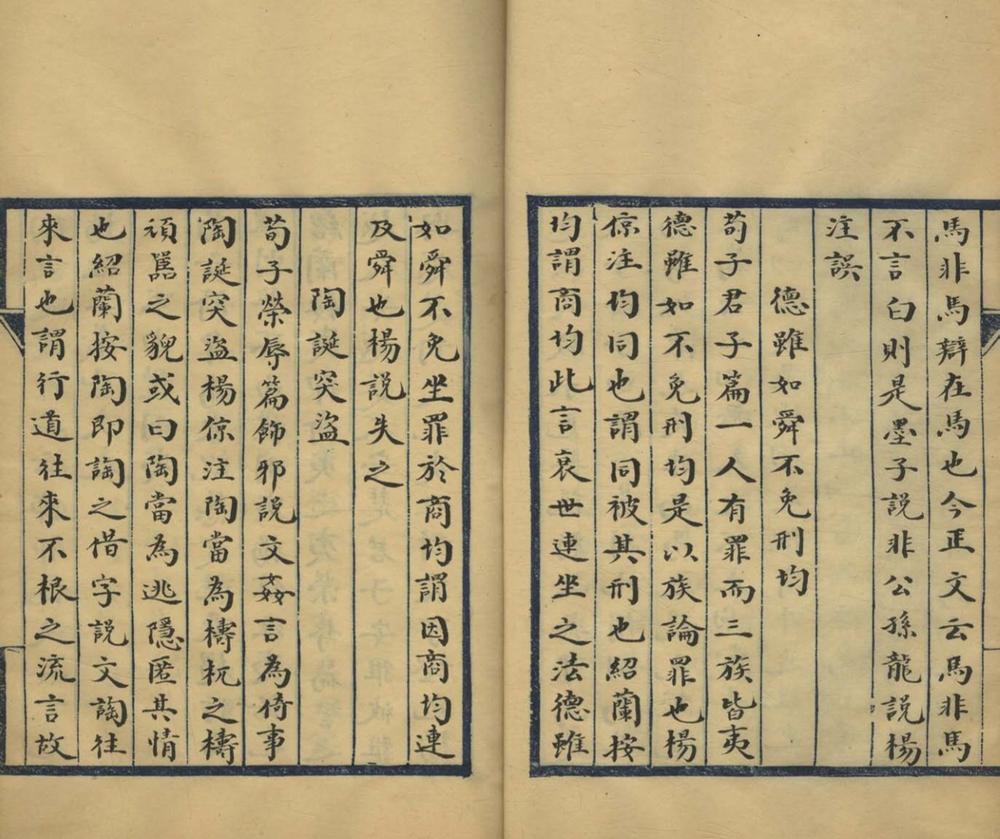 馬非馬辯在馬也今正文云馬非馬
不言白則是墨子說非公孫龍說楊
注誤
德雖如舜不免刑均
荀子君子篇一人有罪而三族皆夷
德雖如不免刑均是以族論罪也楊
倞注均同也謂同被其刑也紹蘭按
均謂商均此言衰世連坐之法德雖
如舜不免坐罪於商均謂因商均連
及舜也楊說失之
陶誕突盜
荀子榮辱篇飾邪說文姦言為倚事
陶誕突盜楊倞注陶當為檮杌之檮
頑嚚之貌或曰陶當為逃隱匿其情
也紹蘭按陶即謟之借字說文謟往
來言也謂行道往來不根之流言故